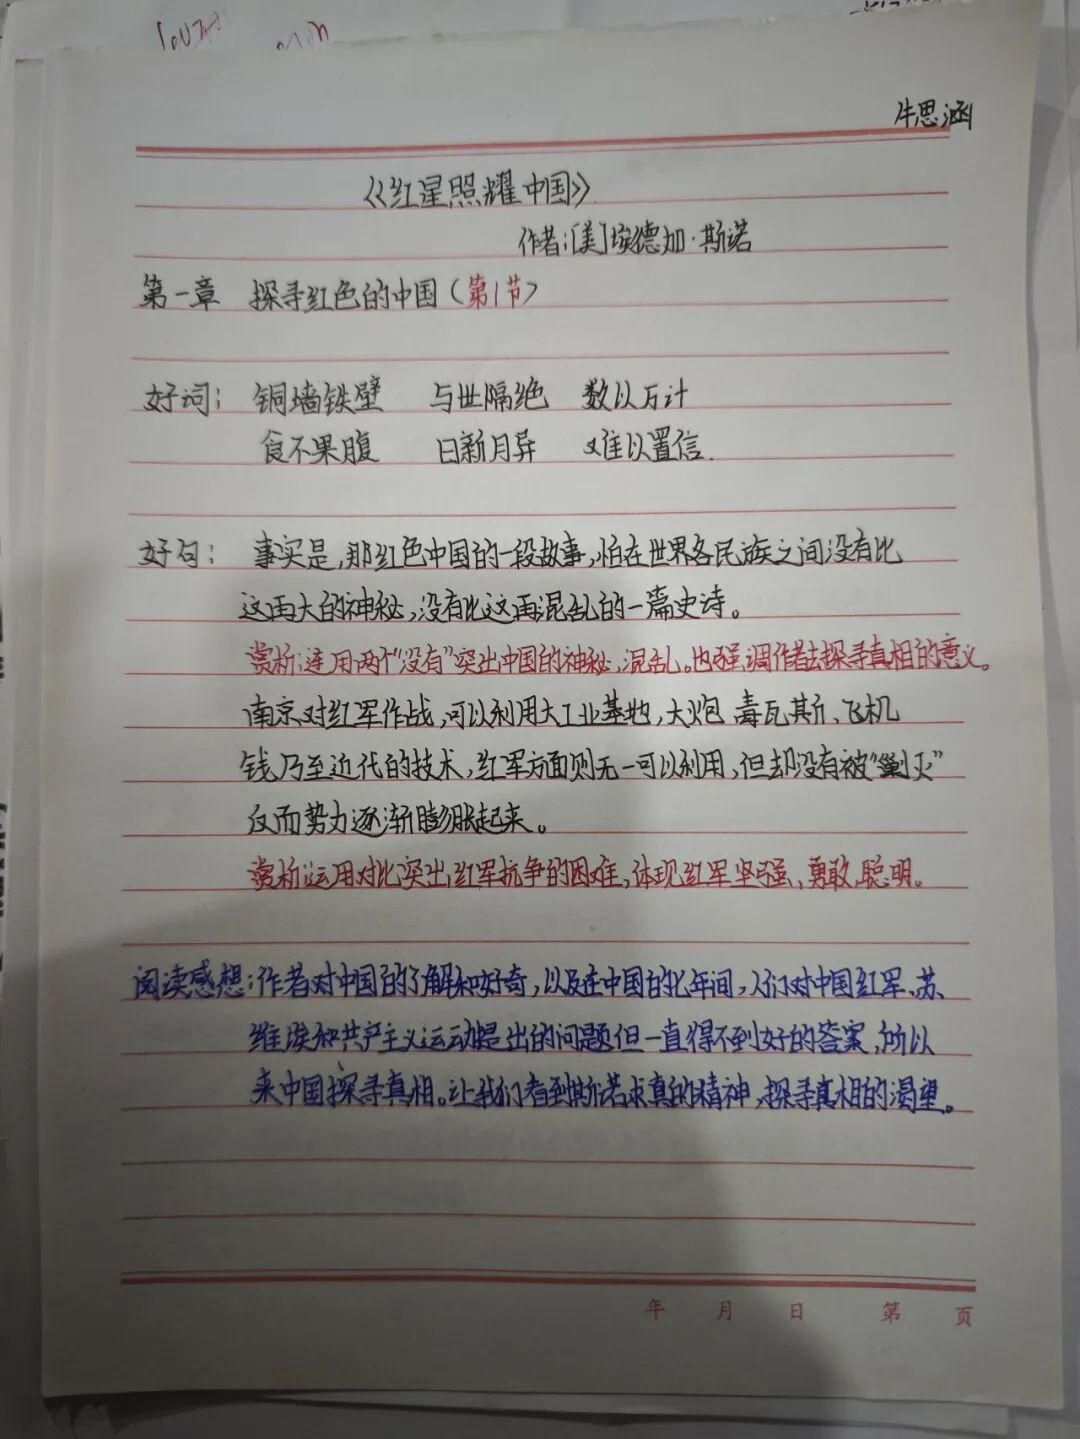 牛思涵
《红星照耀中国》
作者:[美]埃德加·斯诺
第一章 探寻红色的中国(第1节)
好词: 铜墙铁壁 与世隔绝 数以万计
食不果腹 日新月异 难以置信.
好句: 事实是,那红色中国的一段故事,怕在世界各民族之间没有比
这再大的神秘,没有比这再混乱的一篇史诗。
赏析:连用两个"没有"突出中国的神秘,混乱。也强调作者去探寻真相的意义。
南京对红军作战,可以利用大工业基地,大炮 毒瓦斯、飞机
钱乃至近代的技术,红军方面则无一可以利用,但却没有被"剿灭"
反而势力逐渐膨胀起来。
赏析:运用对比突出红军抗争的困难,体现红军坚强、勇敢,聪明。
阅读感想:作者对中国的了解和好奇,以及在中国的七年间,人们对中国红军、苏
维埃和共产主义运动提出的问题但一直得不到好的答案,所以
来中国探寻真相。让我们看到斯诺求真的精神,探寻真相的渴望。
年 月 日 第 页